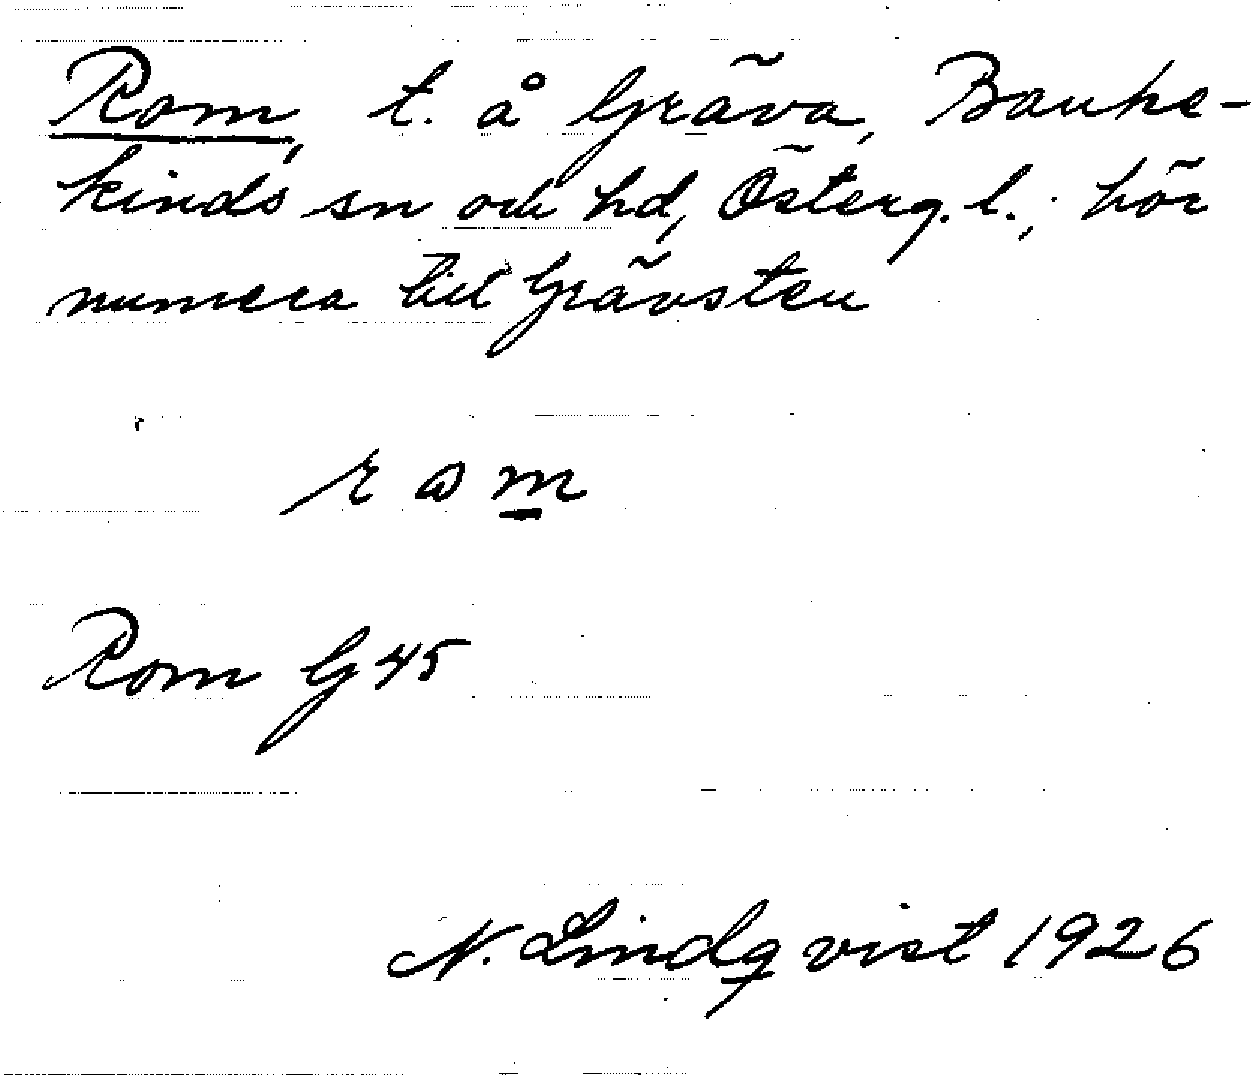 Rom, t. å Gräva, Banke-
kinds sn och hd, Österg. l.; hör
numera till Grävsten
r o m
Rom G 45
N. Lindqvist 1926